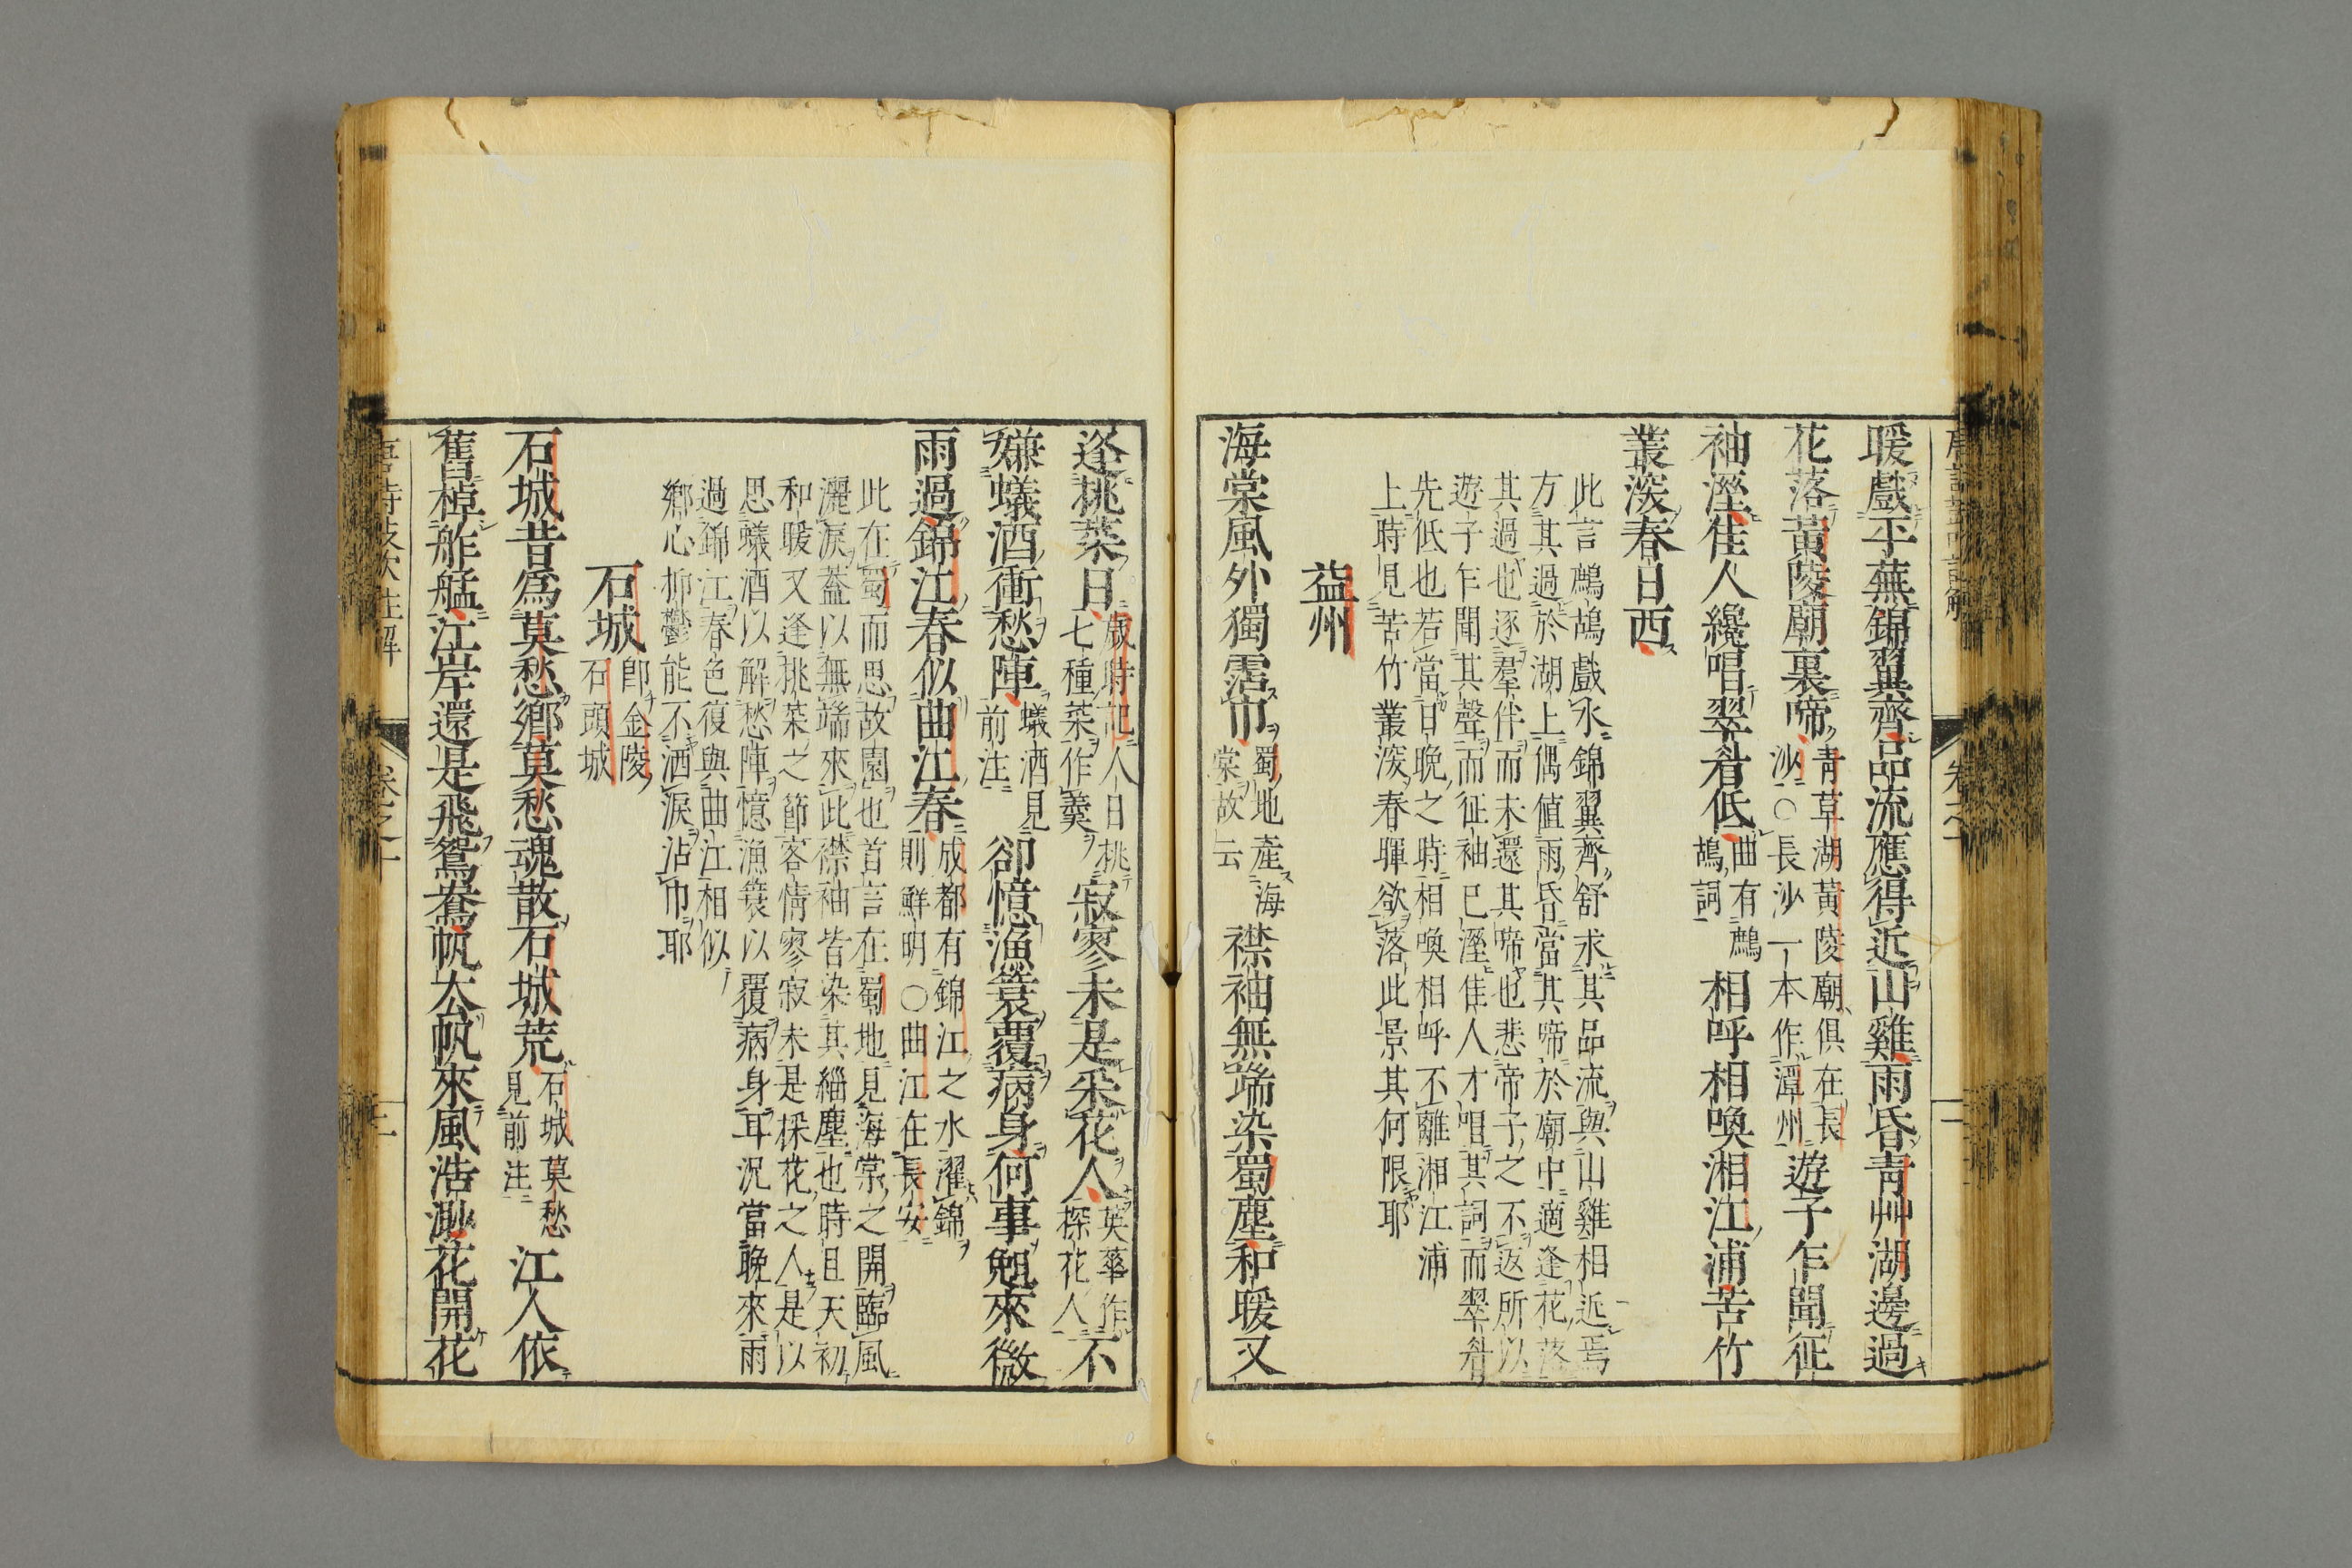 暖戲平蕪錦翼齊品流應得近山雞雨昏青艸湖邊過
花落黃陵廟裏啼青草湖黃陵廟俱在長
沙○長沙一本作潭州遊子乍聞征
袖溼佳人纔唱翠眉低曲有鷓
鴣詞相呼相喚湘江浦苦竹
叢深春日西
此言鷓鴣戲水錦翼齊舒求其品流與山雞相近焉
方其過於湖上偶値雨昏當其啼於廟中適逢花落
其過也逐羣伴而未還其啼也悲帝子之不返所以
遊子乍聞其聲而征袖已溼佳人才唱其詞而翠眉
先低也若當日晚之時相喚相呼不離湘江浦
上時見苦竹叢深春暉欲落此景其何限耶
益州
海棠風外獨霑巾蜀地產海
棠故云襟袖無端染蜀塵和暖又
逢挑菜日歲時記人日挑
七種菜作羹寂寥未是采花人英華作
探花人不
嫌蟻酒衝愁陣蟻酒見
前注卻憶漁簑覆病身何事晚來微
雨過錦江春似曲江春成都有錦江之水濯錦
則鮮明○曲江在長安
此在蜀而思故園也首言在蜀地見海棠之開臨風
灑淚蓋以無端來此襟袖皆染其緇塵也時且天初
和暖又逢挑菜之節客情寥寂未是探花之人是以
思蟻酒以解愁陣憶漁簑以覆病身耳況當晚來雨
過錦江春色復與曲江相似
鄉心抑鬱能不洒淚沾巾耶
石城卽金陵
石頭城
石城昔爲莫愁鄉莫愁魂散石城荒石城莫愁
見前注江人依
舊棹舴艋江岸還是飛鴛鴦帆去帆來風浩渺花開花
卷之十
二